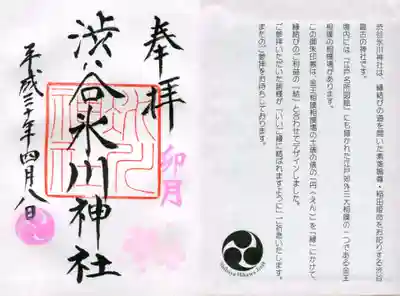 奉拝
卯月
渋谷氷川神社
平成三十年四月八日
渋谷氷川神社は、縁結びの道を開いた素盞鳴尊・稲田姫命をお祀りする渋谷
最古の神社です。
境内には「江戸名所図絵」にも描かれた江戸郊外三大相撲の一つである金王
相撲の相撲場があります。
この御朱印帳は、金王相撲相撲場の土俵の俵の「円(えん)」を「縁」にかけて、
縁結びのご利益の「結」と合わせてデザインしました。
ご参拝いただいた皆様が「いい」縁に結ばれますようにご祈念いたします。
またのご参拝をお待ちしております。
Shibuya Hikawa Jinja